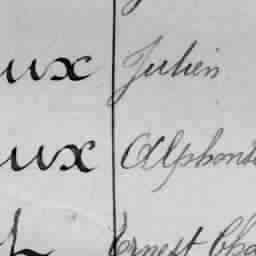 ux Julien
ux Alphons
Ernest Cha